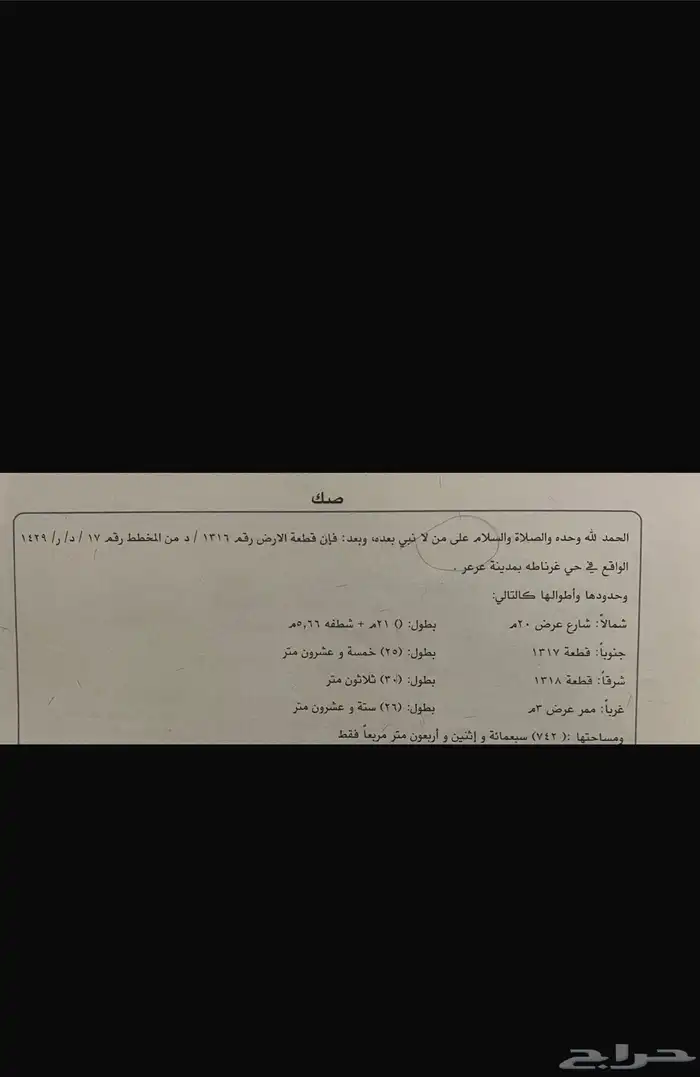 صك
الحمد لله وحده والصلاة والسلام على من لا نبي بعده، وبعد: فإن قطعة الارض رقم ١٣١٦ / د من المخطط رقم ١٧ / د/ ر/ ١٤٢٩
الواقع في حي غرناطه بمدينة عرعر .
وحدودها وأطوالها كالتالي:
شمالاً: شارع عرض ٢٠م بطول: () ٢١م + شطفه ٥,٦٦م
جنوباً: قطعة ١٣١٧ بطول: (٢٥) خمسة و عشرون متر
شرقاً: قطعة ١٣١٨ بطول: (٣٠) ثلاثون متر
غرباً: ممر عرض ٣م بطول: (٢٦) ستة و عشرون متر
ومساحتها :( ٧٤٢) سبعمائة و إثنين و أربعون متر مربعاً فقط
حراج